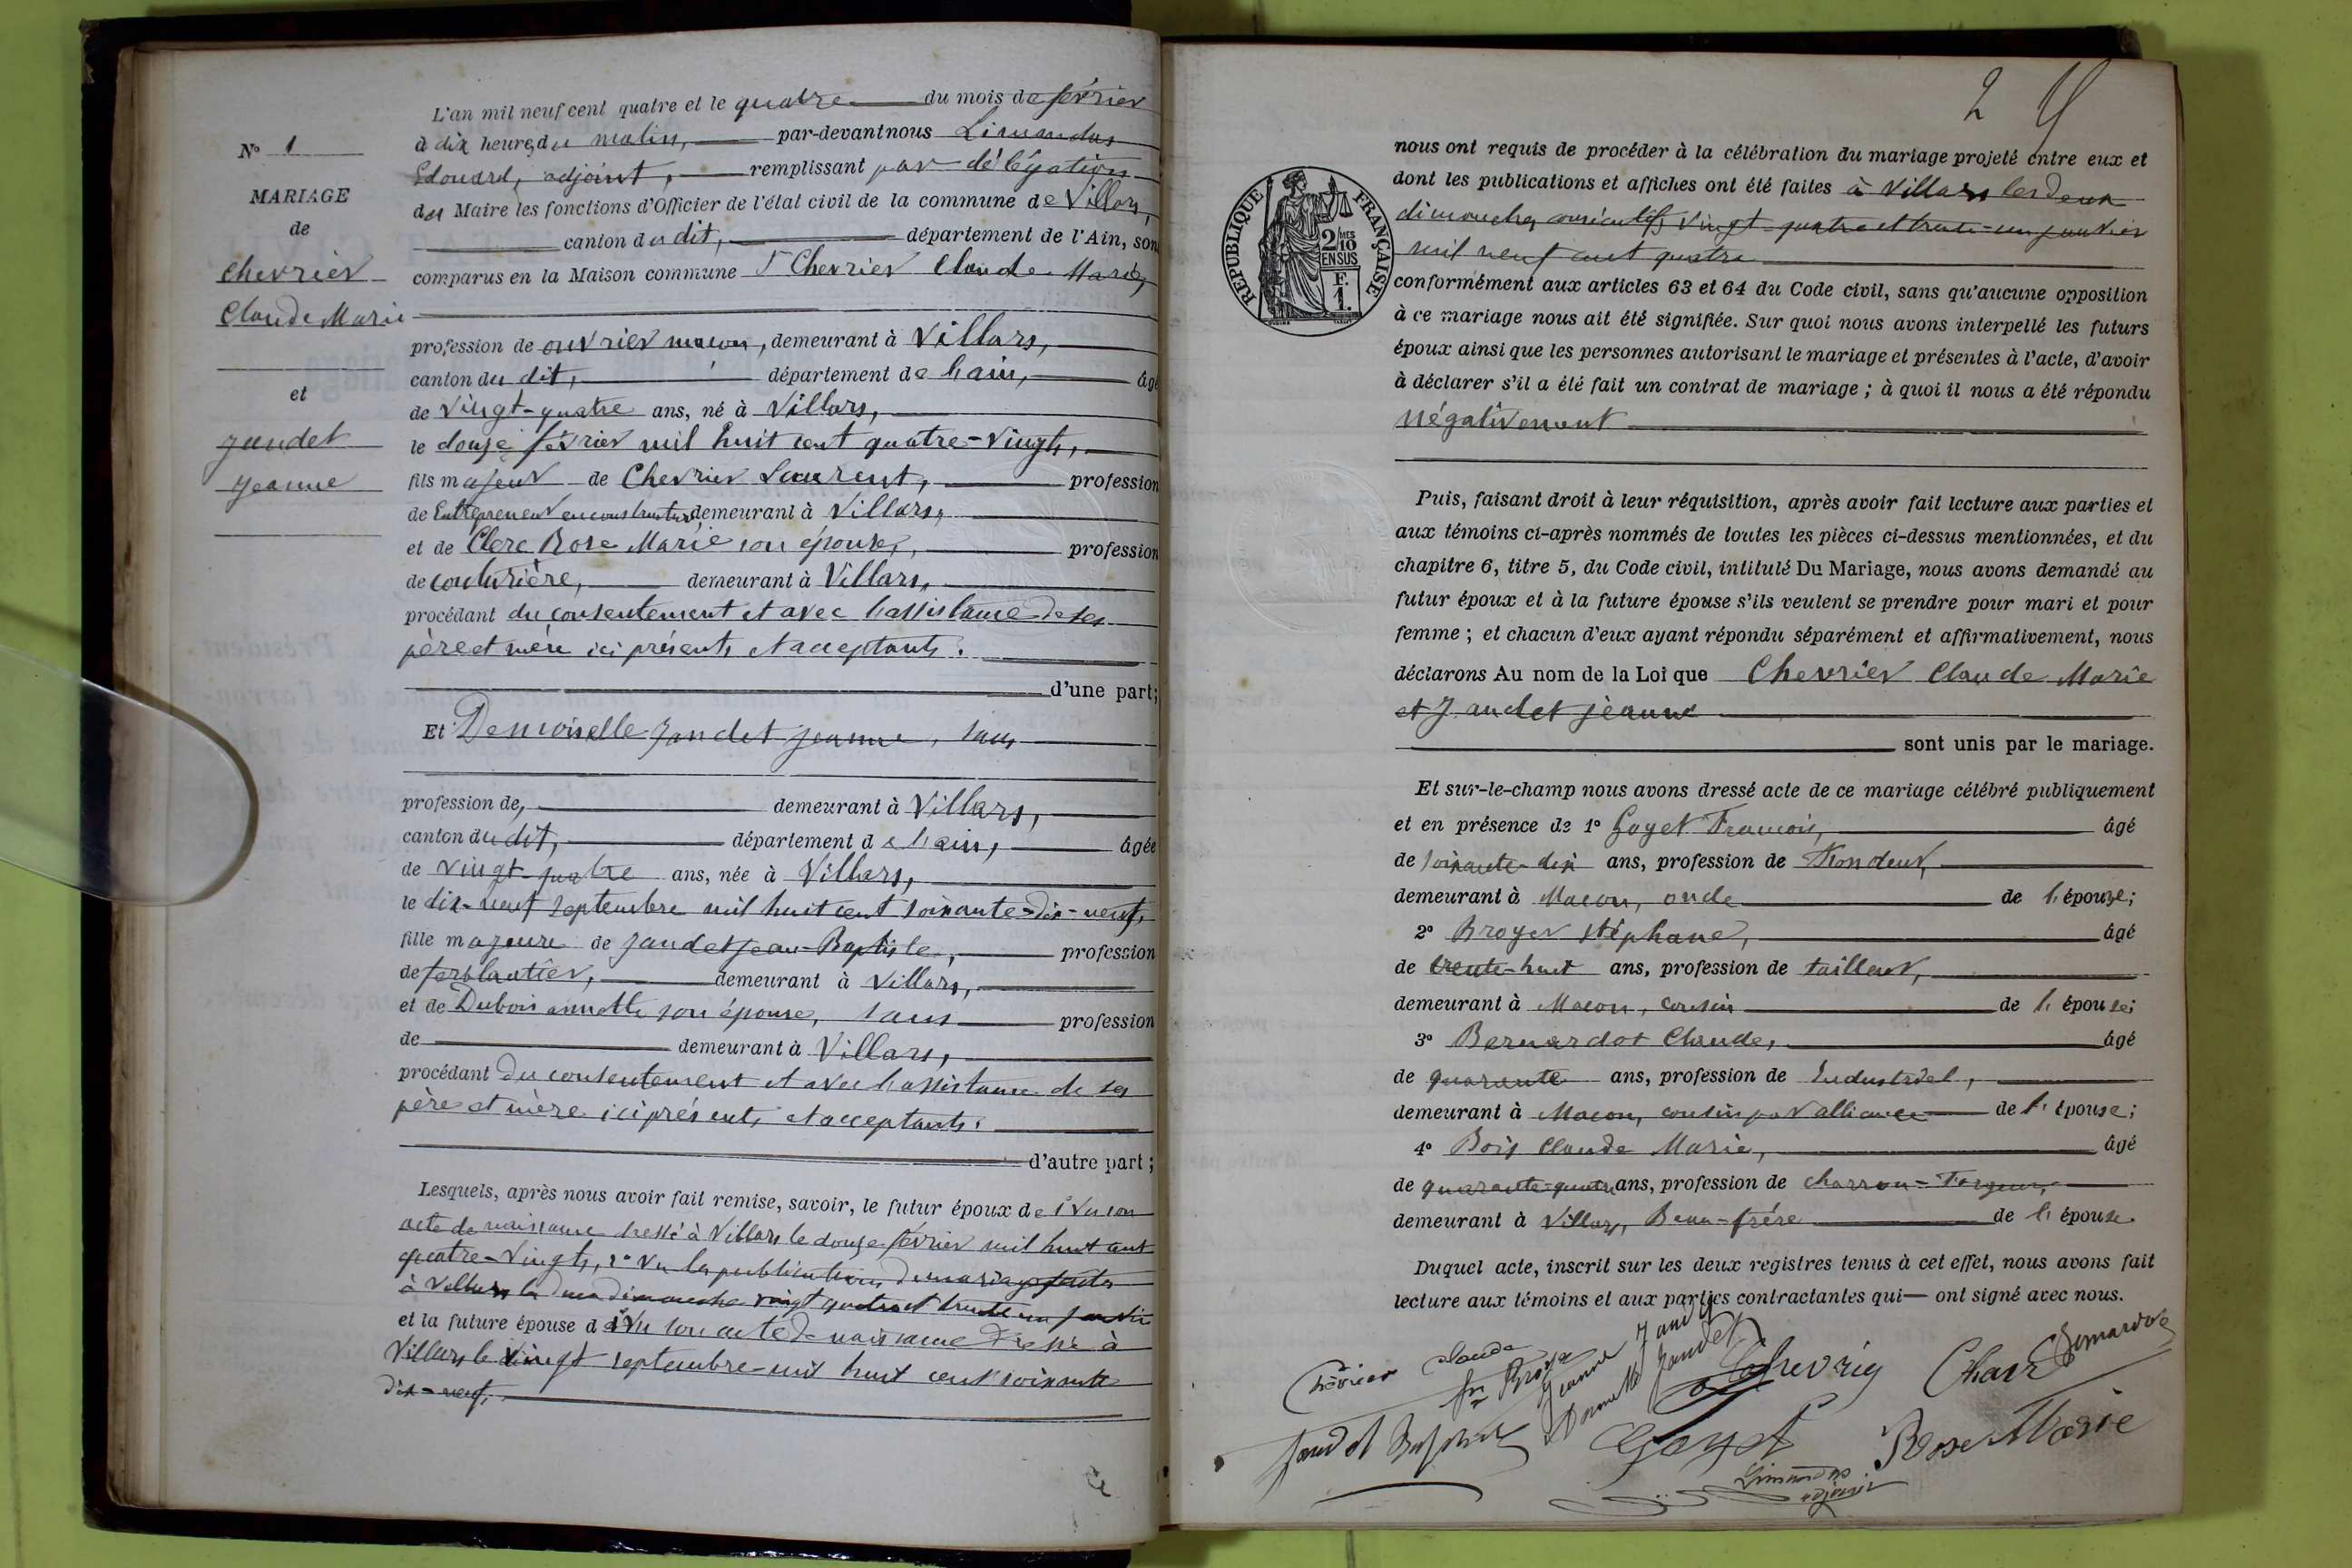 N° 1
MARIAGE
de
Chevrier
Claude Marie
et
Jandet
Jeanne
L'an mil neuf cent quatre et le quatre du mois de février
à dix heures du matin, par-devant nous Limandas
Edouard, adjoint, remplissant par délégation
du Maire les fonctions d'Officier de l'état civil de la commune de Villars,
canton du dit, département de l'Ain, son
comparus en la Maison commune 1° Chevrier Claude Marie,
profession de ouvrier maçon, demeurant à Villars,
canton du dit, département de l'ain, âgé
de vingt-quatre ans, né à Villars,
le douze février mil huit cent quatre-vingts,
fils majeur de Chevrier Laurent, profession
de Entrepreneur en construction, demeurant à Villars,
et de Clerc Rose Marie son épouse, profession
de couturière, demeurant à Villars,
procédant du consentement et avec l'assistance de ses
père et mère ici présents et acceptants.
d'une part;
Et Demoiselle Jandet Jeanne, sans
profession de, demeurant à Villars,
canton du dit, département de l'ain, âgée
de vingt-quatre ans, née à Villars,
le dix-neuf septembre mil huit cent soixante-dix-neuf,
fille majeure de Jandet Jean-Baptiste, profession
de ferblantier, demeurant à Villars,
et de Dubois annette son épouse, sans profession
de demeurant à Villars,
procédant du consentement et avec l'assistance de ses
père et mère ici présents et acceptants.
d'autre part;
Lesquels, après nous avoir fait remise, savoir, le futur époux de 1° Vu son
acte de naissance dressé à Villars le douze février mil huit cent
quatre-vingts, 2° Vu les publications de mariage faites
à Villars les deux dimanches vingt quatre et trente un janvier
et la future épouse de 1° Vu son acte de naissance dressé à
Villars le vingt septembre mil huit cent soixante
dix-neuf,
2
nous ont requis de procéder à la célébration du mariage projeté entre eux et
dont les publications et affiches ont été faites à Villars les deux
dimanches consécutifs vingt-quatre et trente-un janvier
mil neuf cent quatre
RÉPUBLIQUE FRANÇAISE
2 MES
10
EN SUS
F.
1.
conformément aux articles 63 et 64 du Code civil, sans qu'aucune opposition
à ce mariage nous ait été signifiée. Sur quoi nous avons interpellé les futurs
époux ainsi que les personnes autorisant le mariage et présentes à l'acte, d'avoir
à déclarer s'il a été fait un contrat de mariage ; à quoi il nous a été répondu
négativement
Puis, faisant droit à leur réquisition, après avoir fait lecture aux parties et
aux témoins ci-après nommés de toutes les pièces ci-dessus mentionnées, et du
chapitre 6, titre 5, du Code civil, intitulé Du Mariage, nous avons demandé au
futur époux et à la future épouse s'ils veulent se prendre pour mari et pour
femme ; et chacun d'eux ayant répondu séparément et affirmativement, nous
déclarons Au nom de la Loi que Chevrier Claude Marie
et Jandet jeanne
sont unis par le mariage.
Et sur-le-champ nous avons dressé acte de ce mariage célébré publiquement
et en présence de 1° Goyet François, âgé
de soixante-dix ans, profession de Fondeur,
demeurant à Macon, oncle de l'épouse;
2° Broyer stéphane, âgé
de trente-huit ans, profession de tailleur,
demeurant à Macon, cousin de l'épouse;
3° Bernardot Claude, âgé
de quarante ans, profession de Industriel,
demeurant à Macon, cousin par alliance de l'épouse;
4° Bois Claude Marie, âgé
de quarante-quatre ans, profession de charron-Forgeur,
demeurant à Villars, Beau-frère de l'épouse.
Duquel acte, inscrit sur les deux registres tenus à cet effet, nous avons fait
lecture aux témoins et aux parties contractantes qui ont signé avec nous.
Chèvrier Claude
Jeanne Jandet
Jandet
Bernardot
Goyet
Rose Marie
Limandas
adjoint